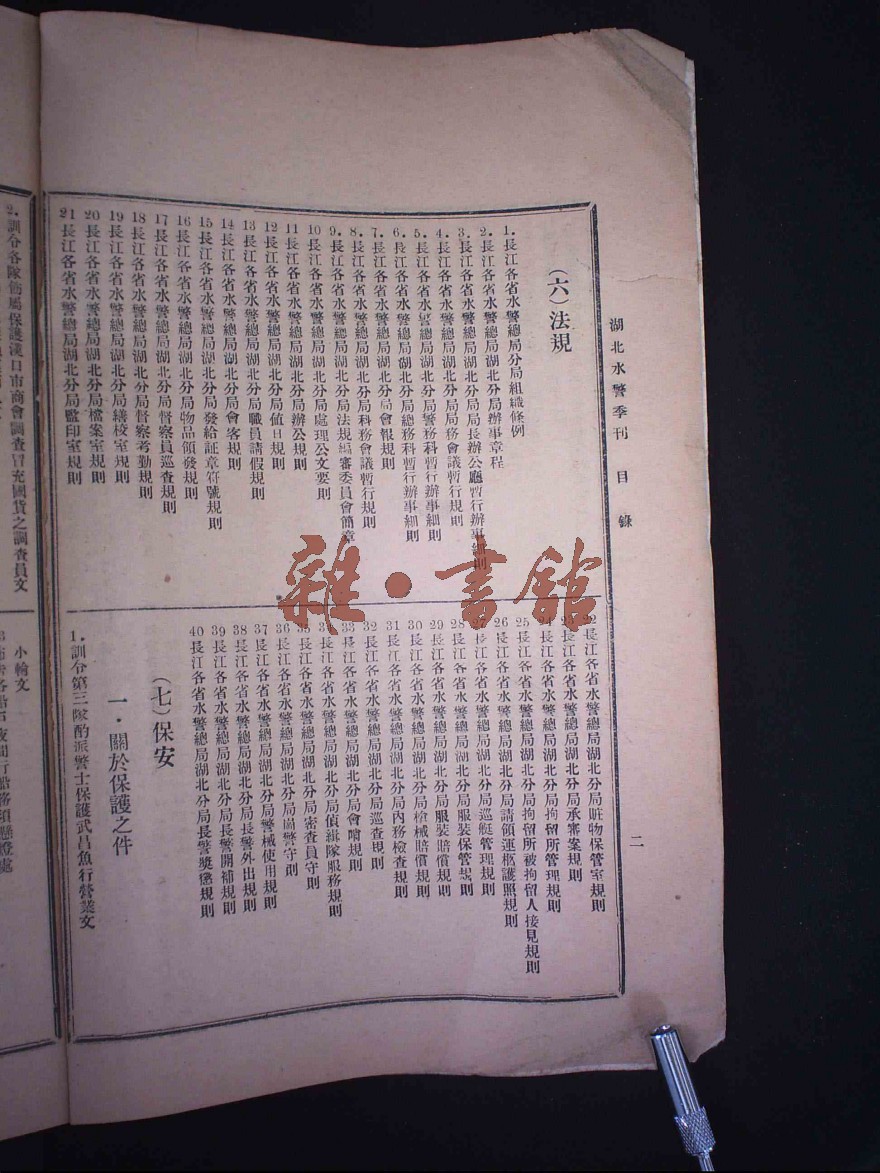 湖北水警季刊 目錄
二
(六)法規
1. 長江各省水警總局分局組織條例
2. 長江各省水警總局湖北分局辦事章程
3. 長江各省水警總局湖北分局局長辦公廳暫行辦事細則
4. 長江各省水警總局湖北分局局務會議暫行規則
5. 長江各省水警總局湖北分局警務科暫行辦事細則
6. 長江各省水警總局湖北分局總務科暫行辦事細則
7. 長江各省水警總局湖北分局會報規則
8. 長江各省水警總局湖北分局科務會議暫行規則
9. 長江各省水警總局湖北分局法規編審委員會簡章
10 長江各省水警總局湖北分局處理公文要則
11 長江各省水警總局湖北分局辦公規則
12 長江各省水警總局湖北分局值日規則
13 長江各省水警總局湖北分局職員請假規則
14 長江各省水警總局湖北分局會客規則
15 長江各省水警總局湖北分局發給証章符號規則
16 長江各省水警總局湖北分局物品領發規則
17 長江各省水警總局湖北分局督察員巡查規則
18 長江各省水警總局湖北分局督察考勤規則
19 長江各省水警總局湖北分局繕校室規則
20 長江各省水警總局湖北分局檔案室規則
21 長江各省水警總局湖北分局監印室規則
22 長江各省水警總局湖北分局賍物保管室規則
23 長江各省水警總局湖北分局承審案規則
24 長江各省水警總局湖北分局拘留所管理規則
25 長江各省水警總局湖北分局拘留所被拘留人接見規則
26 長江各省水警總局湖北分局請領運柩護照規則
27 長江各省水警總局湖北分局巡艇管理規則
28 長江各省水警總局湖北分局服裝保管規則
29 長江各省水警總局湖北分局服裝賠償規則
30 長江各省水警總局湖北分局槍械賠償規則
31 長江各省水警總局湖北分局內務檢查規則
32 長江各省水警總局湖北分局巡查規則
33 長江各省水警總局湖北分局會哨規則
34 長江各省水警總局湖北分局偵緝隊服務規則
35 長江各省水警總局湖北分局密查員守則
36 長江各省水警總局湖北分局崗警守則
37 長江各省水警總局湖北分局警械使用規則
38 長江各省水警總局湖北分局長警外出規則
39 長江各省水警總局湖北分局長警開補規則
40 長江各省水警總局湖北分局長警獎懲規則
(七)保安
一·關於保護之件
1. 訓令第三隊酌派警士保護武昌魚行營業文
2. 訓令各隊飭屬保護漢口市商會調查冒充國貨之調查員文
小輪文
雜·書館